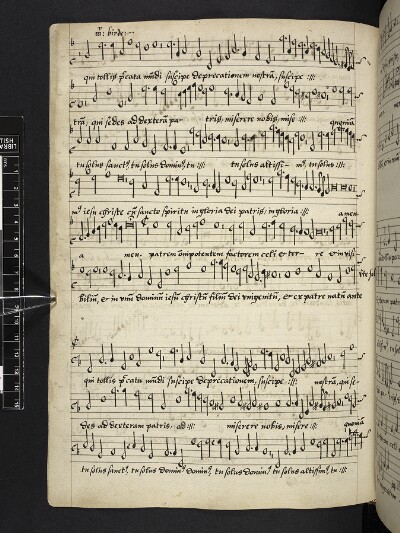 mr: birde:~
qui tollis pccata mũdi suscipe deprecationem nostrã, suscipe :||:
trã, qui sedes ad dexterã pa- tris, miserere nobis, mise :||: quoniã
tu solus sanct9, tu solus domin9, tu :||: tu solus altissi- m9, tu solus :||:
m9 iesu christe cũ sancto spiritu in gloria dei patris, in gloria :||: amen
a men. patrem omnipotentem factorem celi et ter- re et invisi
bilium, et in unũ dominũ iesũ christũ filiũ dei unigenitũ, et ex patre natũ ante
qui tollis pccata mũdi suscipe deprecationem, suscipe :||: nostrã, qui se-
des ad dexteram patris, ad :||: miserere nobis, misere :||: quoniã
tu solus sanct9, tu solus domin9 domin9, tu solus domin9 tu solus altissim9, tu :||: